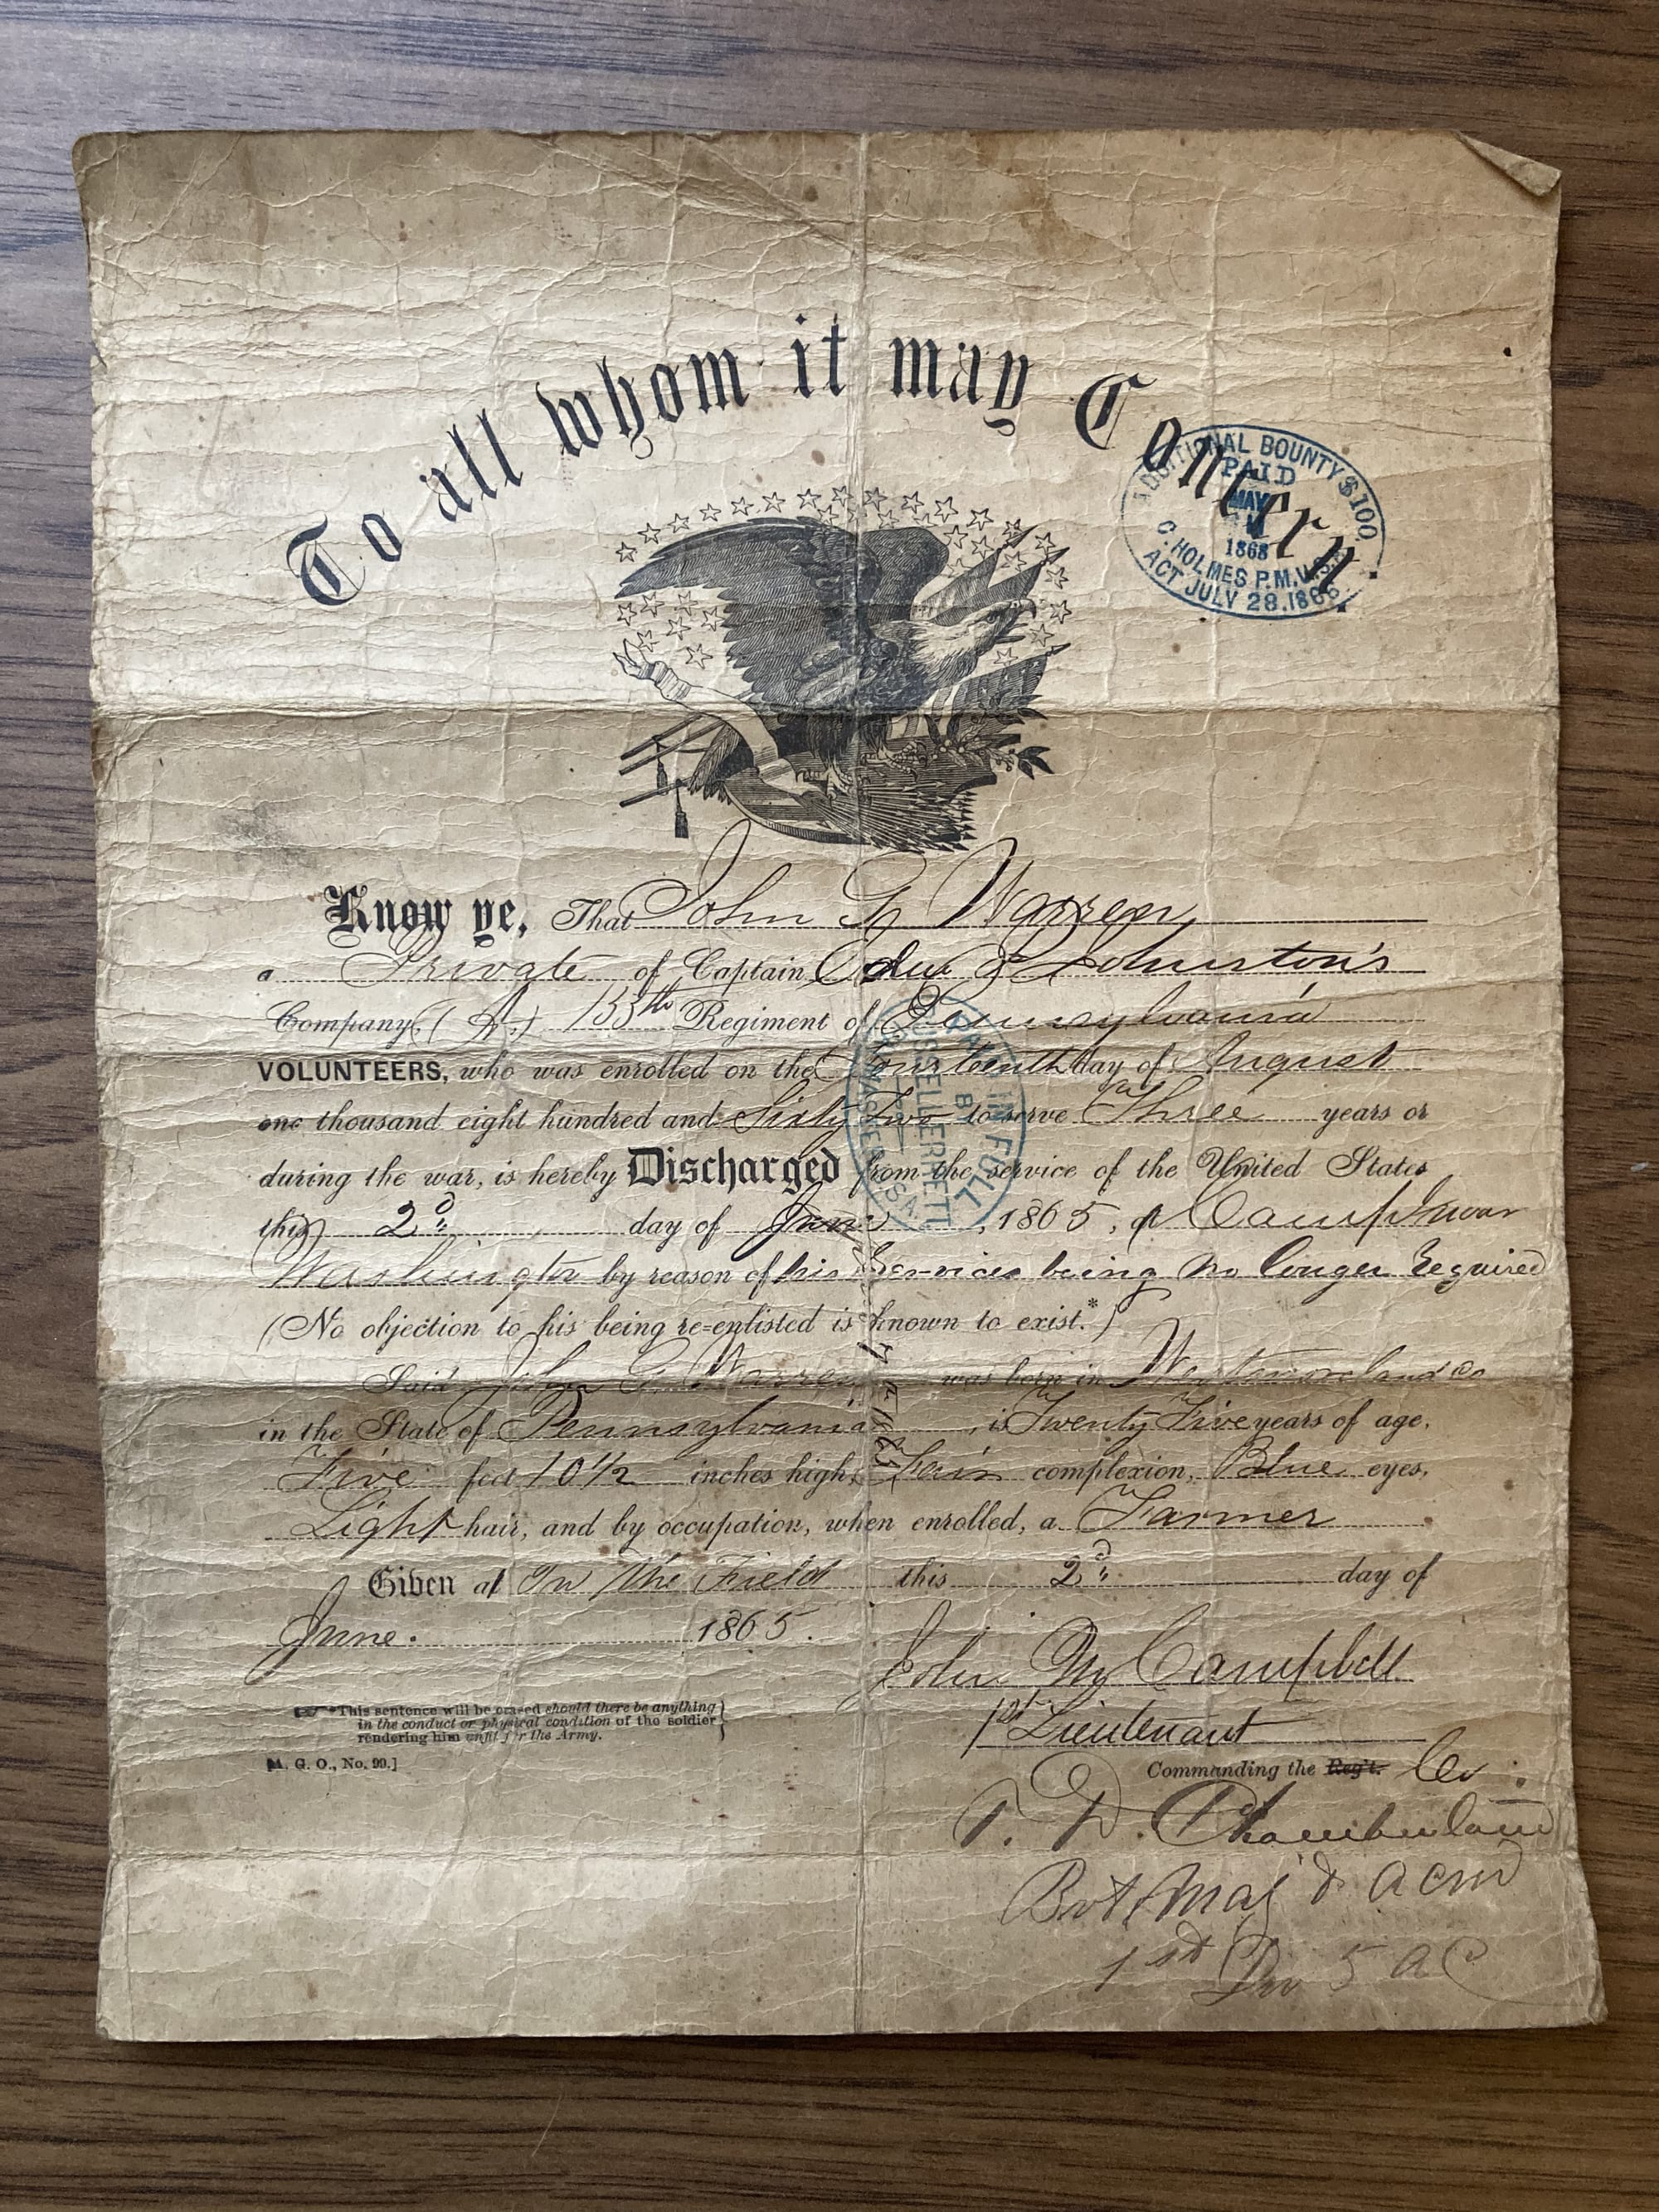 To all whom it may Concern.
ADDITIONAL BOUNTY $100.
PAID
MAY
1868
C. HOLMES P.M.U.S.A.
ACT JULY 28.1866.
Know ye, That John G. Warren,
a Private of Captain Edw P Johnston's
Company, (A.) 155th Regiment of Pennsylvania
VOLUNTEERS, who was enrolled on the Fourteenth day of August
one thousand eight hundred and Sixty Two to serve Three years or
during the war, is hereby Discharged from the service of the United States
this 2d day of June, 1865, at Camp Near
Washington by reason of his Services being no longer Required
(No objection to his being re-enlisted is known to exist.*)
Said John G. Warren was born in Westmoreland Co
in the State of Pennsylvania, is Twenty Five years of age,
Five feet 10 1/2 inches high, Fair complexion, Blue eyes,
Light hair, and by occupation, when enrolled, a Farmer
Given at In the Field this 2d day of
June. 1865.
PAID IN FULL
PAYMASTER U.S.A.
John M Campbell
1st Lieutenant
Commanding the Reg't. Co.
*This sentence will be erased should there be anything
in the conduct or physical condition of the soldier
rendering him unfit for the Army.
[A. G. O., No. 99.]
T. D. Chamberlain
Bvt Maj & ACM
1st Div 5 AC